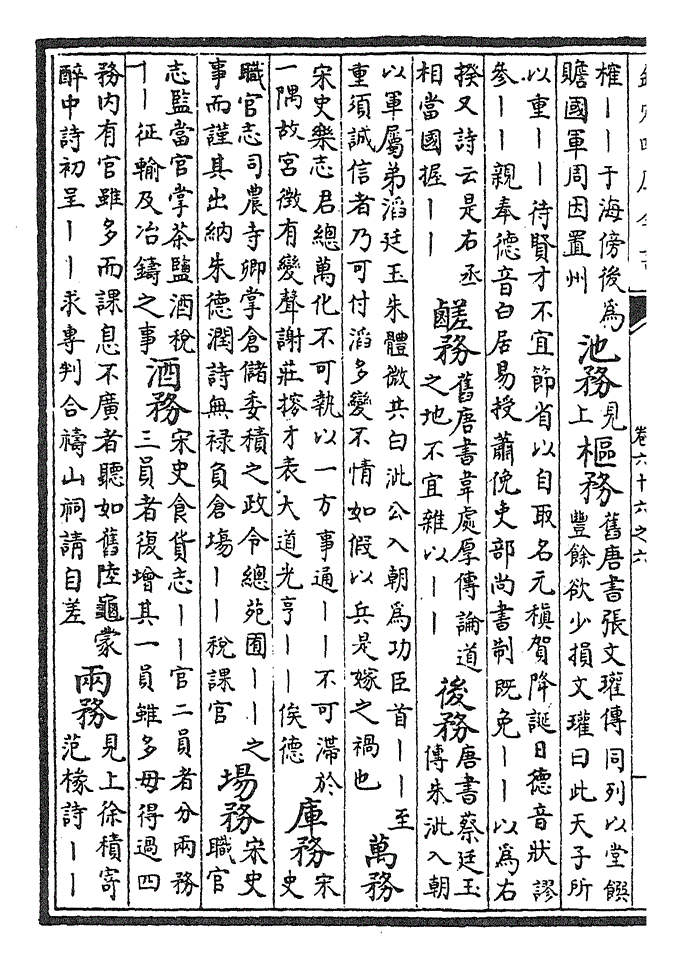 卷六十六之六
榷——于海傍後為
贍國軍周因置州
池務
見
上
樞務
舊唐書張文瓘傳同列以堂饌
豐餘欲少損文瓘曰此天子所
以重——待賢才不宜節省以自取名元稹賀降誕日德音狀謬
參——親奉德音白居易授蕭俛吏部尚書制既免——以為右
揆又詩云是右丞
相當國握——
鹺務
舊唐書韋處厚傳論道
之地不宜雜以——
後務
唐書蔡廷玉
傳朱泚入朝
以軍屬弟滔廷玉朱體微共白泚公入朝為功臣首——至
重須誠信者乃可付滔多變不情如假以兵是嫁之禍也
萬務
宋史樂志君總萬化不可執以一方事通——不可滯於
一隅故宮徵有變聲謝莊搉才表大道光亨——俟德
庫務
宋
史
職官志司農寺卿掌倉儲委積之政令總苑囿——之
事而謹其出納朱德潤詩無禄負倉場——稅課官
場務
宋史
職官
志監當官掌茶鹽酒稅
——征輸及冶鑄之事
酒務
宋史食貨志——官二員者分兩務
三員者復增其一員雖多毋得過四
務内有官雖多而課息不廣者聽如舊陸龜蒙
醉中詩初呈——求專判合禱山祠請自差
兩務
見上徐積寄
范椽詩——